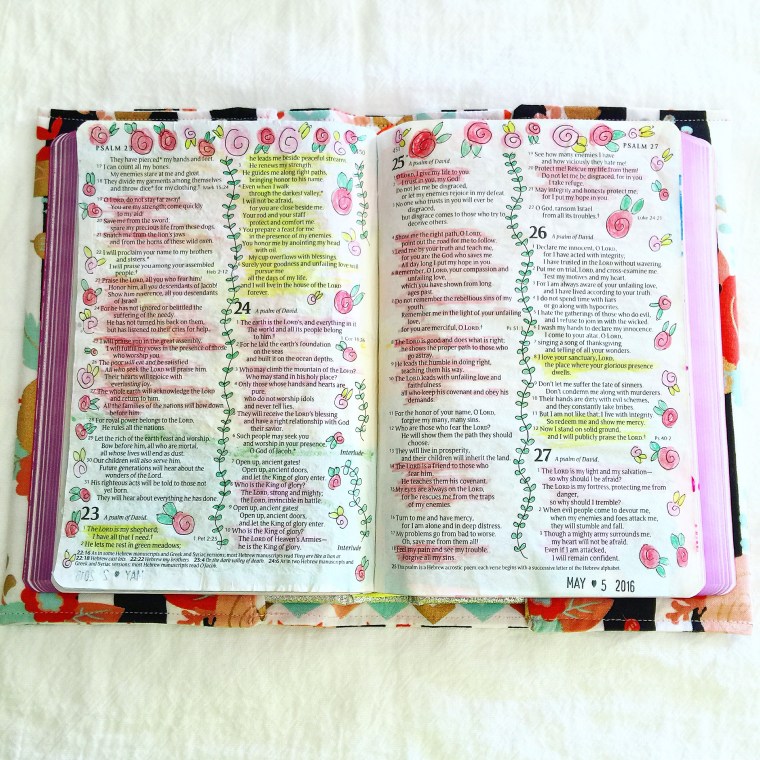 PSALM 23
They have pierced* my hands and feet.
17 I can count all my bones.
My enemies stare at me and gloat.
18 They divide my garments among themselves
and throw dice* for my clothing.
19 O LORD, do not stay far away!
You are my strength; come quickly
to my aid!
20 Save me from the sword;
spare my precious life from these dogs.
21 Snatch me from the lion's jaws
and from the horns of these wild oxen.
22 I will proclaim your name to my brothers
and sisters.*
I will praise you among your assembled
people.
Heb 2:12
23 Praise the LORD, all you who fear him!
Honor him, all you descendants of Jacob!
Show him reverence, all you descendants
of Israel!
24 For he has not ignored or belittled the
suffering of the needy.
He has not turned his back on them,
but has listened to their cries for help.
25 I will praise you in the great assembly.
I will fulfill my vows in the presence of those
who worship you.
26 The poor will eat and be satisfied.
All who seek the LORD will praise him.
Their hearts will rejoice with
everlasting joy.
27 The whole earth will acknowledge the LORD
and return to him.
All the families of the nations will bow down
before him.
28 For royal power belongs to the LORD.
He rules all the nations.
29 Let the rich of the earth feast and worship.
Bow before him, all who are mortal,
all whose lives will end as dust.
30 Our children will also serve him.
Future generations will hear about the
wonders of the Lord.
31 His righteous acts will be told to those not
yet born.
They will hear about everything he has done.
23 A psalm of David.
1 The LORD is my shepherd;
I have all that I need.
1 Pet 2:25
2 He lets me rest in green meadows;
he leads me beside peaceful streams.
3 He renews my strength.
He guides me along right paths,
bringing honor to his name.
4 Even when I walk
through the darkest valley,*
I will not be afraid,
for you are close beside me.
Your rod and your staff
protect and comfort me.
5 You prepare a feast for me
in the presence of my enemies.
You honor me by anointing my head
with oil.
My cup overflows with blessings.
6 Surely your goodness and unfailing love will
pursue me
all the days of my life,
and I will live in the house of the LORD
forever.
24 A psalm of David.
1 The earth is the LORD's, and everything in it.
The world and all its people belong
to him.
2 For he laid the earth's foundation
on the seas
and built it on the ocean depths.
3 Who may climb the mountain of the LORD?
Who may stand in his holy place?
4 Only those whose hands and hearts are
pure,
who do not worship idols
and never tell lies.
5 They will receive the LORD's blessing
and have a right relationship with God
their savior.
6 Such people may seek you
and worship in your presence,
O God of Jacob.*
Interlude
7 Open up, ancient gates!
Open up, ancient doors,
and let the King of glory enter.
8 Who is the King of glory?
The LORD, strong and mighty;
the LORD, invincible in battle.
9 Open up, ancient gates!
Open up, ancient doors,
and let the King of glory enter.
10 Who is the King of glory?
The LORD of Heaven's Armies—
he is the King of glory.
Interlude
PSALM 27
25 A psalm of David.
1 O LORD, I give my life to you.
2 I trust in you, my God!
Do not let me be disgraced,
or let my enemies rejoice in my defeat.
3 No one who trusts in you will ever be
disgraced,
but disgrace comes to those who try to
deceive others.
4 Show me the right path, O LORD;
point out the road for me to follow.
5 Lead me by your truth and teach me,
for you are the God who saves me.
All day long I put my hope in you.
6 Remember, O LORD, your compassion and
unfailing love,
which you have shown from long
ages past.
7 Do not remember the rebellious sins of my
youth.
Remember me in the light of your unfailing
love,
for you are merciful, O LORD.
8 The LORD is good and does what is right;
he shows the proper path to those who
go astray.
9 He leads the humble in doing right,
teaching them his way.
10 The LORD leads with unfailing love and
faithfulness
all who keep his covenant and obey his
demands.
11 For the honor of your name, O LORD,
forgive my many, many sins.
12 Who are those who fear the LORD?
He will show them the path they should
choose.
13 They will live in prosperity,
and their children will inherit the land.
14 The LORD is a friend to those who
fear him.
He teaches them his covenant.
15 My eyes are always on the LORD,
for he rescues me from the traps
of my enemies.
16 Turn to me and have mercy,
for I am alone and in deep distress.
17 My problems go from bad to worse.
Oh, save me from them all!
18 Feel my pain and see my trouble.
Forgive all my sins.
19 See how many enemies I have
and how viciously they hate me!
20 Protect me! Rescue my life from them!
Do not let me be disgraced, for in you
I take refuge.
21 May integrity and honesty protect me,
for I put my hope in you.
22 O God, ransom Israel
from all its troubles.
Luke 24:21
26 A psalm of David.
1 Declare me innocent, O LORD,
for I have acted with integrity;
I have trusted in the LORD without wavering.
2 Put me on trial, LORD, and cross-examine me.
Test my motives and my heart.
3 For I am always aware of your unfailing love,
and I have lived according to your truth.
4 I do not spend time with liars
or go along with hypocrites.
5 I hate the gatherings of those who do evil,
and I refuse to join in with the wicked.
6 I wash my hands to declare my innocence.
I come to your altar, O LORD,
7 singing a song of thanksgiving
and telling of all your wonders.
8 I love your sanctuary, LORD,
the place where your glorious presence
dwells.
9 Don't let me suffer the fate of sinners.
Don't condemn me along with murderers.
10 Their hands are dirty with evil schemes,
and they constantly take bribes.
11 But I am not like that; I live with integrity.
So redeem me and show me mercy.
12 Now I stand on solid ground,
and I will publicly praise the LORD.
Ps 40:2
27 A psalm of David.
1 The LORD is my light and my salvation—
so why should I be afraid?
The LORD is my fortress, protecting me from
danger,
so why should I tremble?
2 When evil people come to devour me,
when my enemies and foes attack me,
they will stumble and fall.
3 Though a mighty army surrounds me,
my heart will not be afraid.
Even if I am attacked,
I will remain confident.
25 This psalm is a Hebrew acrostic poem; each verse begins with a successive letter of the Hebrew alphabet.
MAY ♥ 5 2016